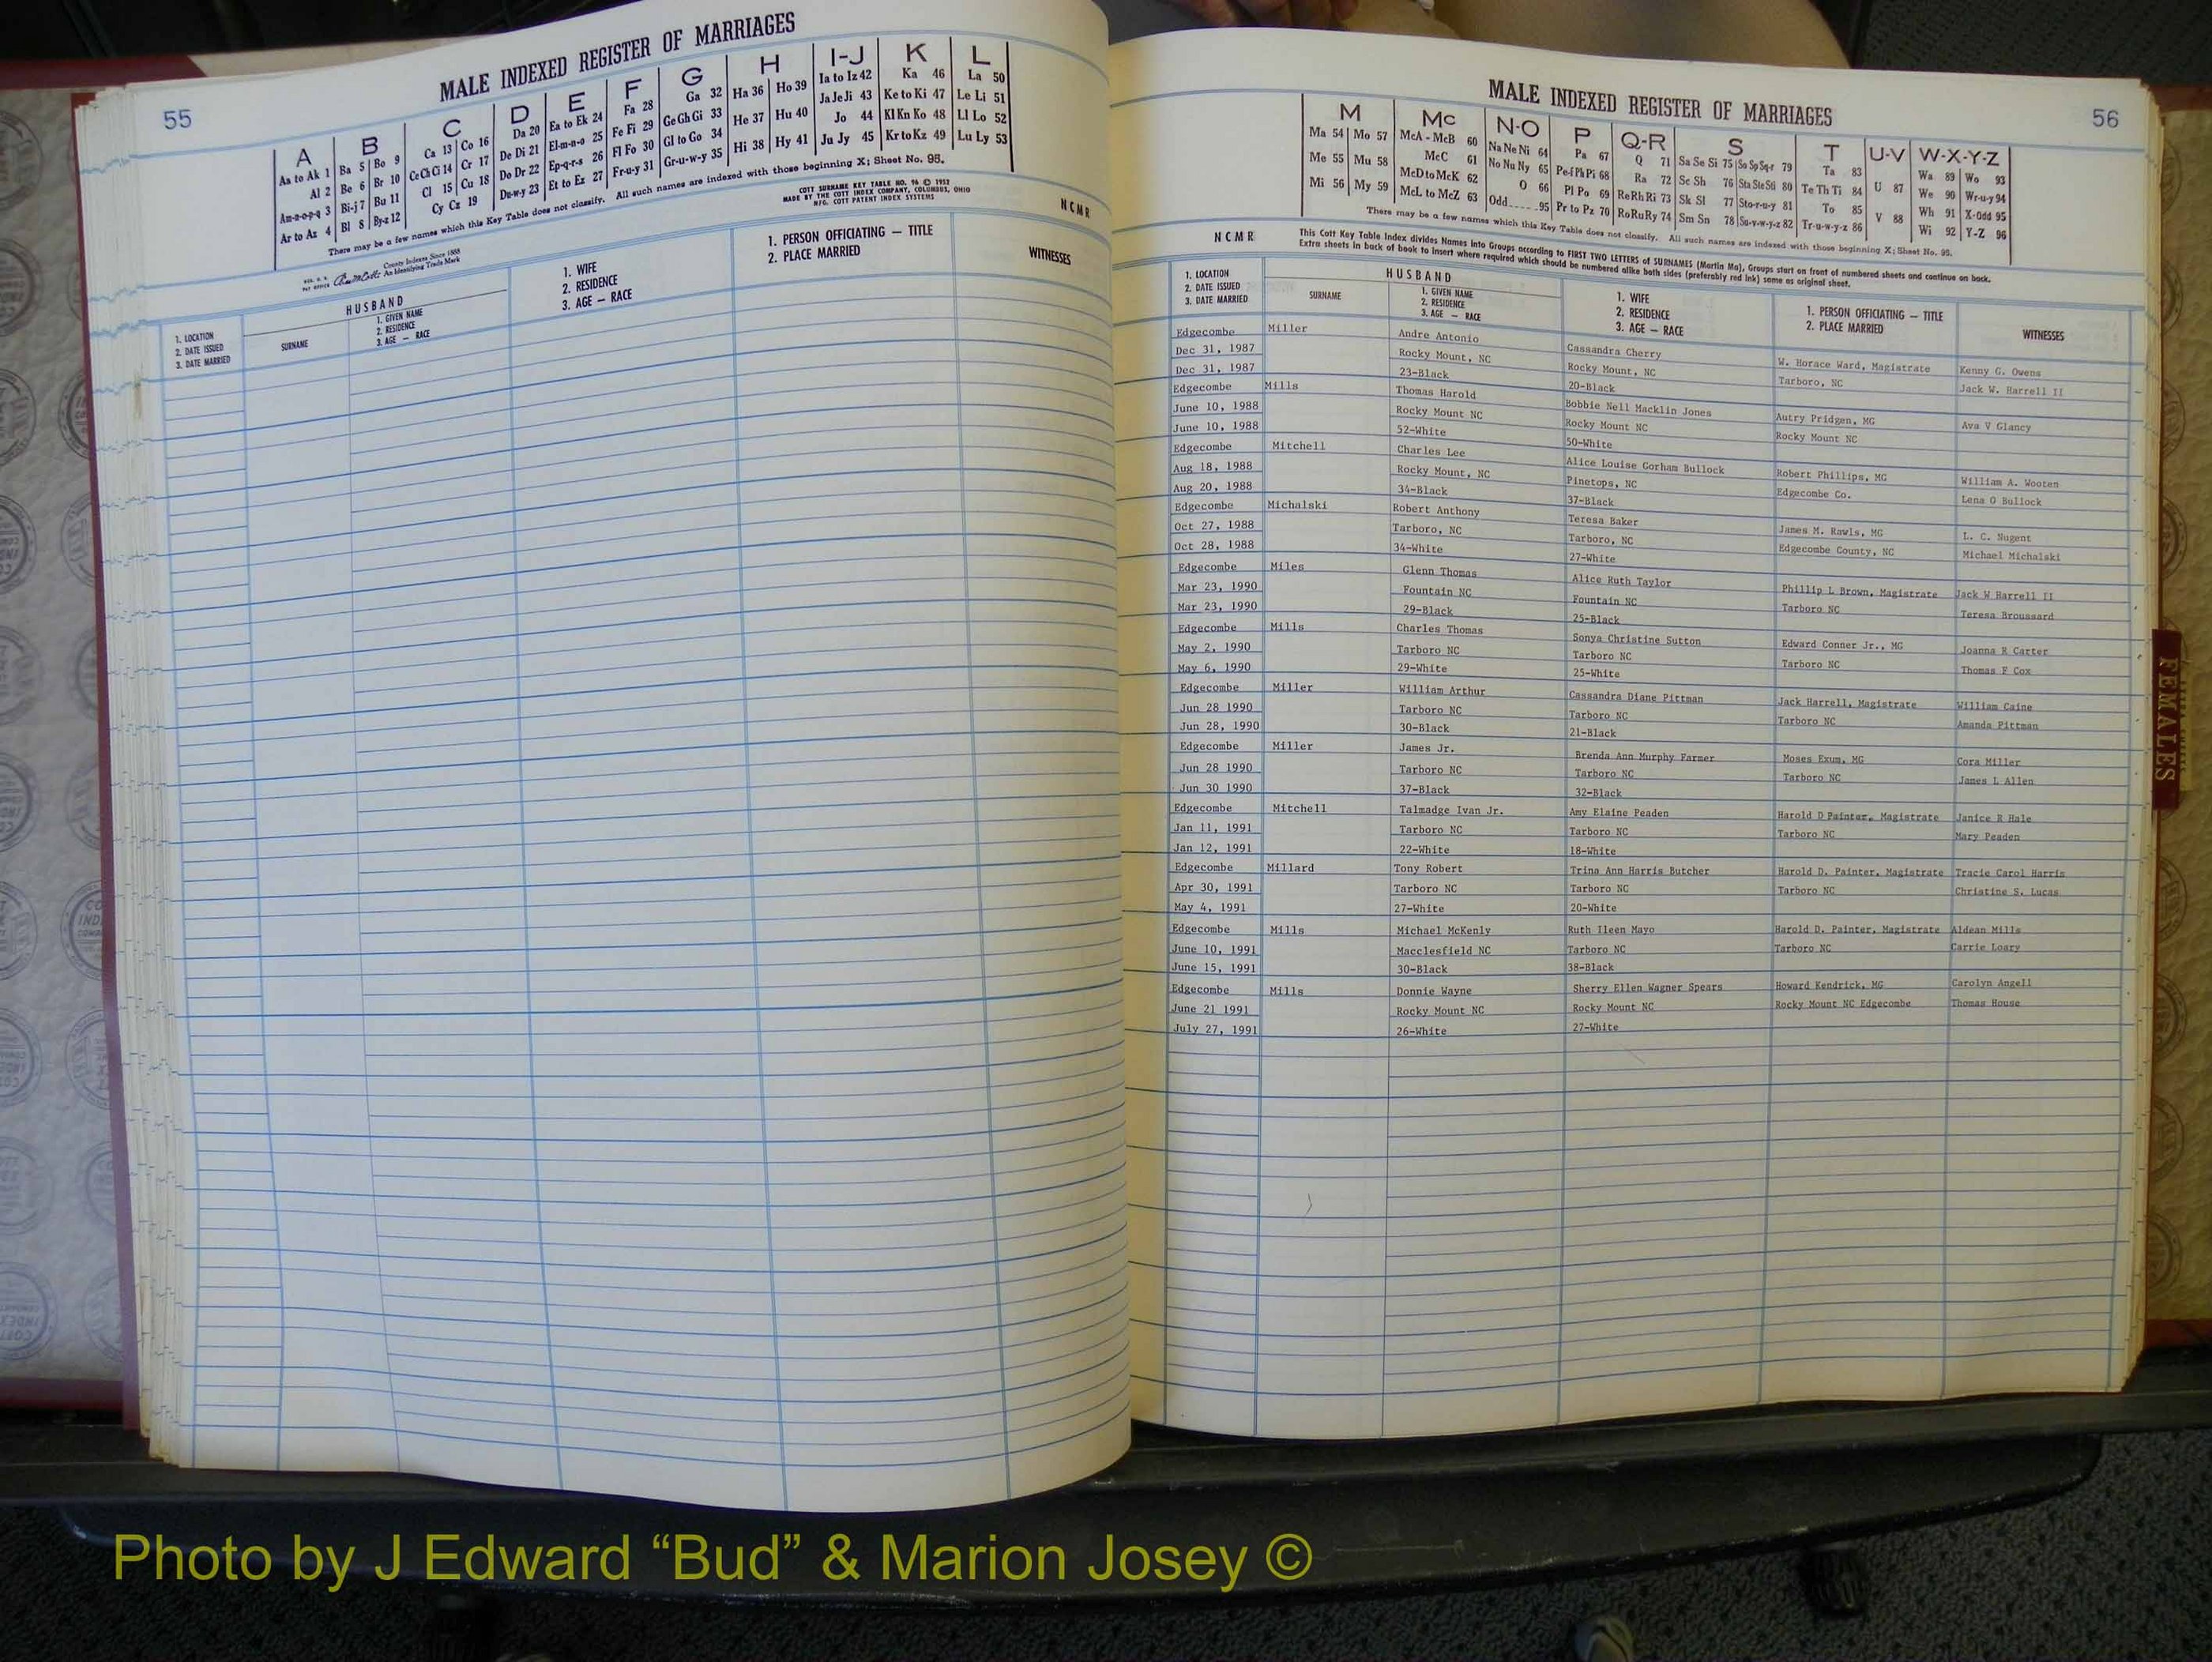 MALE INDEXED REGISTER OF MARRIAGES
55
A B C D E F G H I-J K L
Aa to Ak 1 Ba 5 Bo 9 Ca 13 Co 16 Da 20 Ea to Ek 24 Fa 28 Ga 32 Ha 36 Ho 39 Ia to Iz 42 Ka 46 La 50
Al 2 Be 6 Br 10 Ce Ch Ci 14 Cr 17 De Di 21 El-m-n-o 25 Fe Fi 29 Ge Gh Gi 33 He 37 Hu 40 Ja Je Ji 43 Ke to Ki 47 Le Li 51
Am-n-o-p-q 3 Bi-j 7 Bu 11 Cl 15 Cu 18 Do Dr 22 Ep-q-r-s 26 Fl Fo 30 Gl to Go 34 Hi 38 Hy 41 Jo 44 Kl Kn Ko 48 Ll Lo 52
Ar to Az 4 Bl 8 By-z 12 Cy Cz 19 Du-w-y 23 Et to Ez 27 Fr-u-y 31 Gr-u-w-y 35 Ju Jy 45 Kr to Kz 49 Lu Ly 53
There may be a few names which this Key Table does not classify. All such names are indexed with those beginning X; Sheet No. 95.
County Indexes Since 1888
An Identifying Trade Mark
COTT SURNAME KEY TABLE NO. 96 © 1952
MADE BY THE COTT INDEX COMPANY, COLUMBUS, OHIO
MFG. COTT PATENT INDEX SYSTEMS
NCMR
1. LOCATION
2. DATE ISSUED
3. DATE MARRIED
HUSBAND
SURNAME
1. GIVEN NAME
2. RESIDENCE
3. AGE — RACE
1. WIFE
2. RESIDENCE
3. AGE — RACE
1. PERSON OFFICIATING — TITLE
2. PLACE MARRIED
WITNESSES
MALE INDEXED REGISTER OF MARRIAGES
56
M Mc N-O P Q-R S T U-V W-X-Y-Z
Ma 54 Mo 57 McA - McB 60 Na Ne Ni 64 Pa 67 Q 71 Sa Se Si 75 So Sp Sq-r 79 Ta 83 Wa 89 Wo 93
Me 55 Mu 58 McC 61 No Nu Ny 65 Pe-f Ph Pi 68 Ra 72 Sc Sh 76 Sta Ste Sti 80 Te Th Ti 84 U 87 We 90 Wr-u-y 94
Mi 56 My 59 McD to McK 62 O 66 Pl Po 69 Re Rh Ri 73 Sk Sl 77 Sto-r-u-y 81 To 85 V 88 Wh 91 X-Odd 95
McL to McZ 63 Odd 95 Pr to Pz 70 Ro Ru Ry 74 Sm Sn 78 Su-v-w-y-z 82 Tr-u-w-y-z 86 Wi 92 Y-Z 96
There may be a few names which this Key Table does not classify. All such names are indexed with those beginning X; Sheet No. 95.
NCMR
This Cott Key Table Index divides Names into Groups according to FIRST TWO LETTERS of SURNAMES (Martin Ma), Groups start on front of numbered sheets and continue on back.
Extra sheets in back of book to insert where required which should be numbered alike both sides (preferably red ink) same as original sheet.
1. LOCATION
2. DATE ISSUED
3. DATE MARRIED
HUSBAND
SURNAME
1. GIVEN NAME
2. RESIDENCE
3. AGE — RACE
1. WIFE
2. RESIDENCE
3. AGE — RACE
1. PERSON OFFICIATING — TITLE
2. PLACE MARRIED
WITNESSES
Edgecombe Miller Andre Antonio Cassandra Cherry W. Horace Ward, Magistrate Kenny G. Owens
Dec 31, 1987 Rocky Mount, NC Rocky Mount, NC Tarboro, NC Jack W. Harrell II
Dec 31, 1987 23-Black 20-Black
Edgecombe Mills Thomas Harold Bobbie Nell Macklin Jones Autry Pridgen, MG Ava V Glancy
June 10, 1988 Rocky Mount NC Rocky Mount NC Rocky Mount NC
June 10, 1988 52-White 50-White
Edgecombe Mitchell Charles Lee Alice Louise Gorham Bullock Robert Phillips, MG William A. Wooten
Aug 18, 1988 Rocky Mount, NC Pinetops, NC Edgecombe Co. Lena O Bullock
Aug 20, 1988 34-Black 37-Black
Edgecombe Michalski Robert Anthony Teresa Baker James M. Rawls, MG L. C. Nugent
Oct 27, 1988 Tarboro, NC Tarboro, NC Edgecombe County, NC Michael Michalski
Oct 28, 1988 34-White 27-White
Edgecombe Miles Glenn Thomas Alice Ruth Taylor Phillip L Brown, Magistrate Jack W Harrell II
Mar 23, 1990 Fountain NC Fountain NC Tarboro NC Teresa Broussard
Mar 23, 1990 29-Black 25-Black
Edgecombe Mills Charles Thomas Sonya Christine Sutton Edward Conner Jr., MG Joanna R Carter
May 2, 1990 Tarboro NC Tarboro NC Tarboro NC Thomas F Cox
May 6, 1990 29-White 25-White
Edgecombe Miller William Arthur Cassandra Diane Pittman Jack Harrell, Magistrate William Caine
Jun 28 1990 Tarboro NC Tarboro NC Tarboro NC Amanda Pittman
Jun 28, 1990 30-Black 21-Black
Edgecombe Miller James Jr. Brenda Ann Murphy Farmer Moses Exum, MG Cora Miller
Jun 28 1990 Tarboro NC Tarboro NC Tarboro NC James L Allen
Jun 30 1990 37-Black 32-Black
Edgecombe Mitchell Talmadge Ivan Jr. Amy Elaine Peaden Harold D Painter, Magistrate Janice R Hale
Jan 11, 1991 Tarboro NC Tarboro NC Tarboro NC Mary Peaden
Jan 12, 1991 22-White 18-White
Edgecombe Millard Tony Robert Trina Ann Harris Butcher Harold D. Painter, Magistrate Tracie Carol Harris
Apr 30, 1991 Tarboro NC Tarboro NC Tarboro NC Christine S. Lucas
May 4, 1991 27-White 20-White
Edgecombe Mills Michael McKenly Ruth Ileen Mayo Harold D. Painter, Magistrate Aldean Mills
June 10, 1991 Macclesfield NC Tarboro NC Tarboro NC Carrie Loary
June 15, 1991 30-Black 38-Black
Edgecombe Mills Donnie Wayne Sherry Ellen Wagner Spears Howard Kendrick, MG Carolyn Angell
June 21 1991 Rocky Mount NC Rocky Mount NC Rocky Mount NC Edgecombe Thomas House
July 27, 1991 26-White 27-White
FEMALES
Photo by J Edward “Bud” & Marion Josey ©